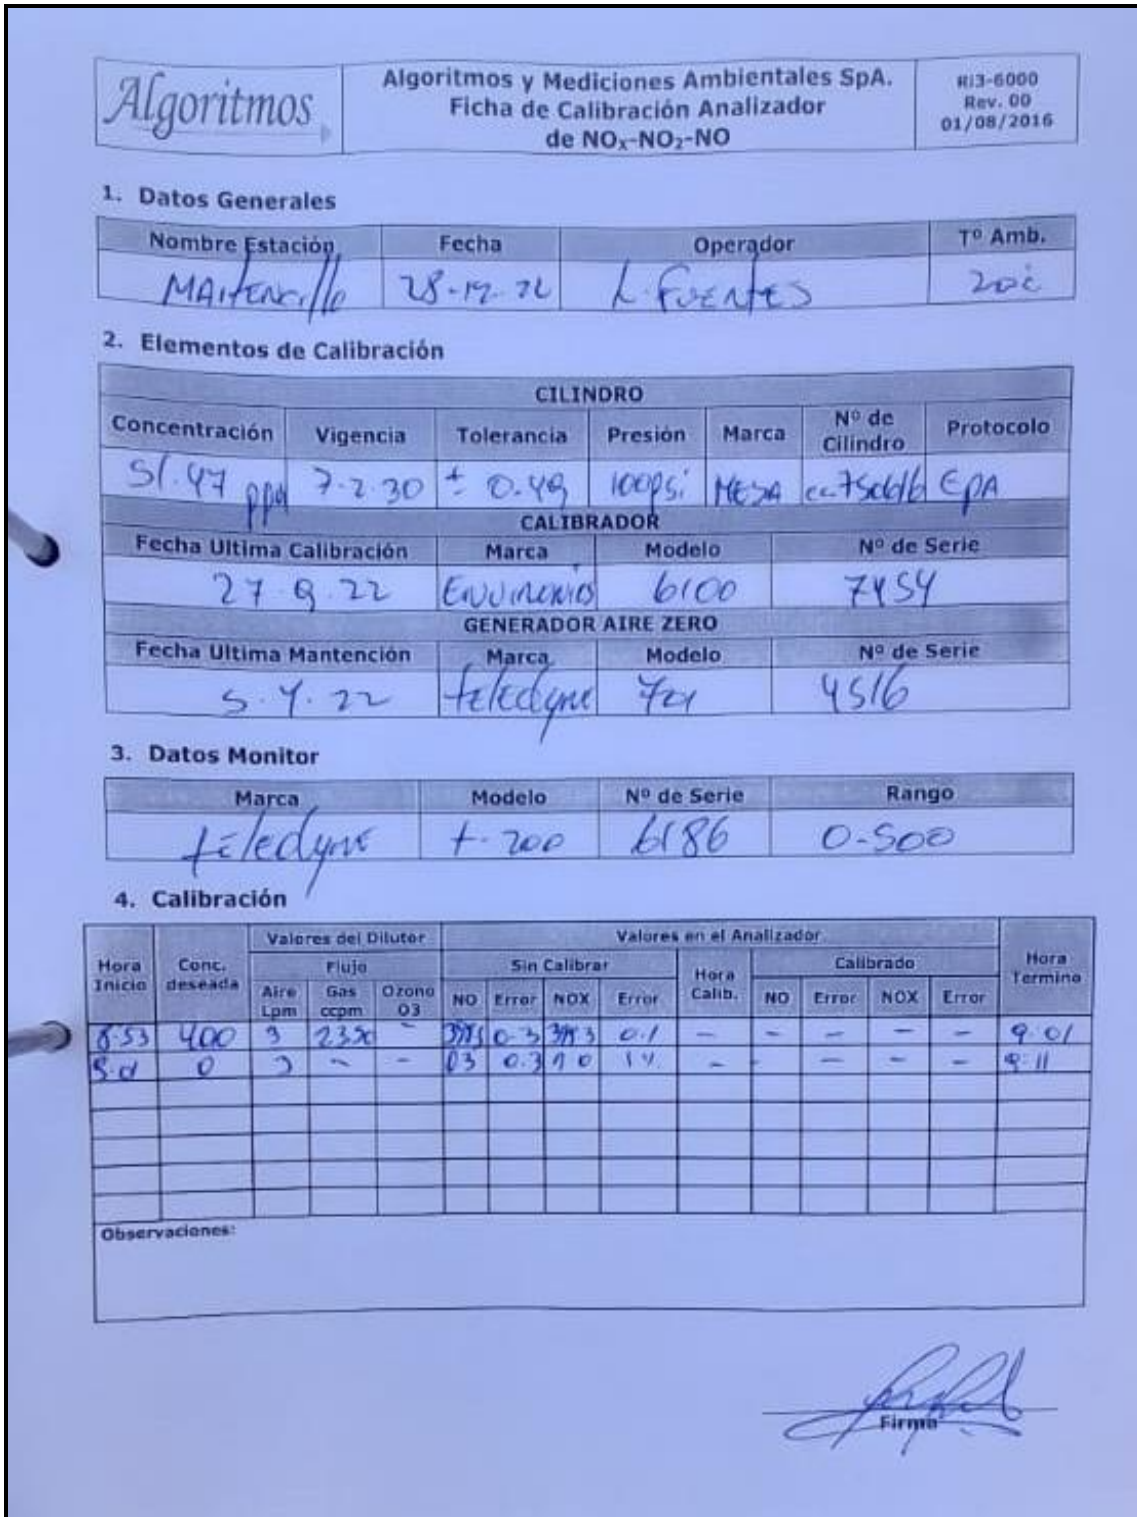 Algoritmos
Algoritmos y Mediciones Ambientales SpA.
Ficha de Calibración Analizador
de NOX-NO2-NO
Ri3-6000
Rev. 00
01/08/2016
1. Datos Generales
Nombre Estación Fecha Operador Tº Amb.
MAitencillo L. FUENTES
2. Elementos de Calibración
CILINDRO
Concentración Vigencia Tolerancia Presión Marca Nº de Cilindro Protocolo
51.47 ppm 7.2.30 ± 0.49 100psi EPA
CALIBRADOR
Fecha Ultima Calibración Marca Modelo Nº de Serie
27.9.22 6100 7454
GENERADOR AIRE ZERO
Fecha Ultima Mantención Marca Modelo Nº de Serie
5.4.22 teledyne 701 4516
3. Datos Monitor
Marca Modelo Nº de Serie Rango
teledyne t-200 6186 0-500
4. Calibración
Hora Inicio Conc. deseada Valores del Dilutor Valores en el Analizador Hora Termino
Flujo Sin Calibrar Hora Calib. Calibrado
Aire Lpm Gas ccpm Ozono O3 NO Error NOX Error NO Error NOX Error
8.53 400 3 - 0.3 0.1 - - - - - 9.01
0 - - 0.3 - - - - - 9.11
Observaciones:
Firma